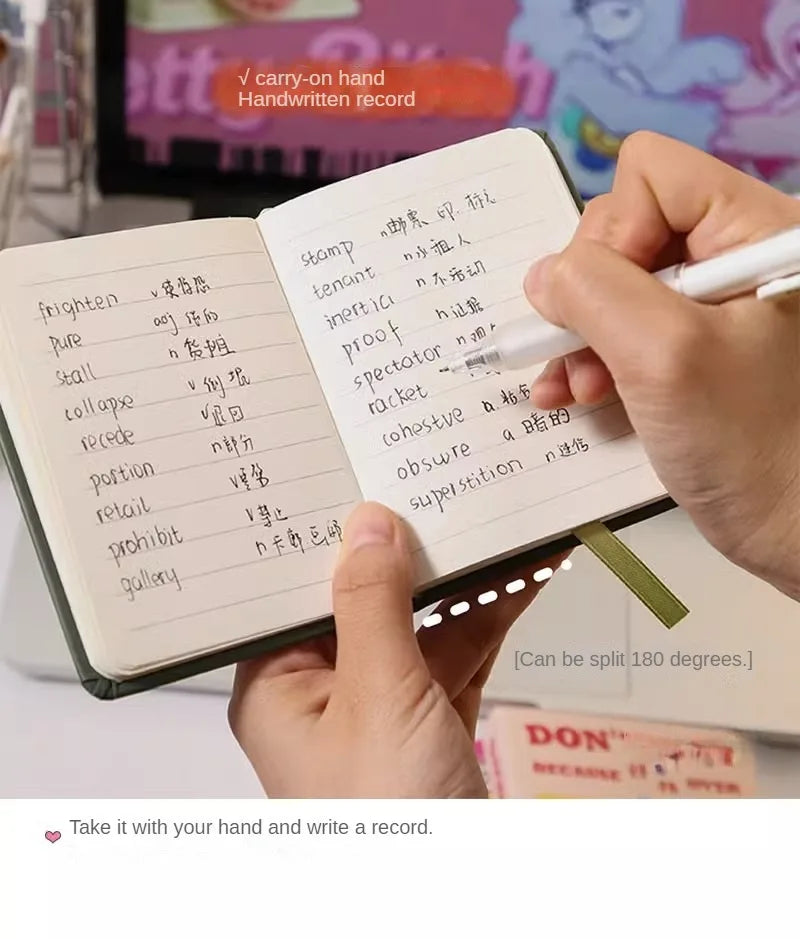 etty Bitch
√ carry-on hand
Handwritten record
frighten v 使惊恐
pure adj
stall n 货摊
collapse v 倒塌
recede v 退回
portion n 部分
retail v 零售
prohibit v 禁止
gallery n 卡郎 画
stamp n 邮票 印. 标志
tenant n 承租人
inertia n 不活动
proof n 证据
spectator n
racket
cohestve a. 粘
obswre a 暗的
superstition n 迷信
[Can be split 180 degrees.]
DON'
BECAUSE IT
IS OVER
Take it with your hand and write a record.